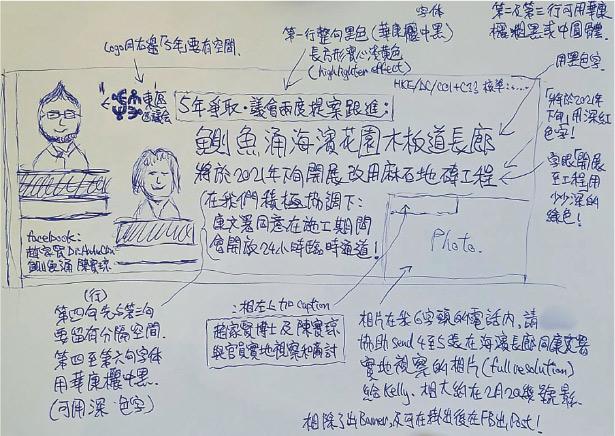 Logo同右邊「5年」要有空間.
第一行整句黑色(華康儷中黑)字体
長方形實心淺黃色
(highlighter effect)
第二及第三行可用華康
儷粗黑或中圓體.
用黑色字.
HKE/DC/CC1+C2?
東區
區議會
5年爭取・議會兩度提案跟進:
鰂魚涌海濱花園木板道長廊
將於2021年下旬開展改用麻石地磚工程
「將於2021年
下旬」用深紅
色字!
字眼「開展
至工程」用
深的
綠色!
在我們積極協調下:
康文署同意在施工期間
會開放24小時臨時通道!
Photo.
facebook:
趙家賢 Dr.
鰂魚涌 陳寶琼
(行)
第四句先與第三句
要留有分隔空間.
第四至第六句字体
用華康儷中黑.
(可用深 色字)
:相左上加caption
趙家賢博士及陳寶琼
與官員實地視察和商討
相片在 6字頭的電話內, 請
協助send 4至5張在海濱長廊同康文署
實地視察的相片(full resolution)
給Kelly. 相大約在2月20幾號影.
相除了出Banner, 及可在掛出後在FB出Post!